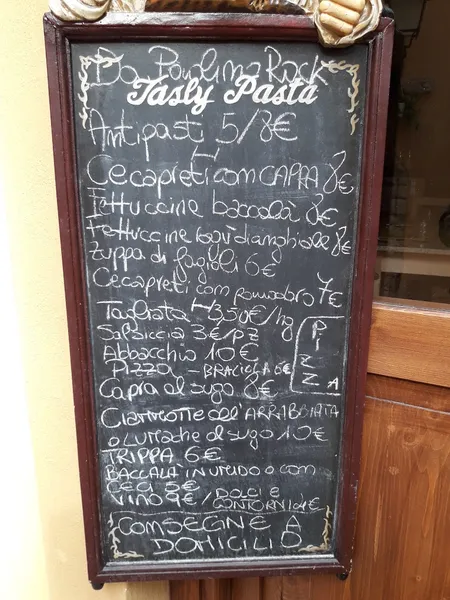 Da Paolina Rock
Tasty Pasta
Antipasti 5/8€
Cecapreti com CAPRA 8€
Fettuccine baccalà 8€
Fettuccine 8€
zuppa di fagioli 6€
Cecapreti com pomodoro 7€
Tagliata 3,50€/hg
Salsiccia 3€/pz
Abbacchio 10€
Pizza - BRACIOLA 6€
PIZZA
Capra al sugo 8€
Ciammotte all'ARRIBBIATA
o Lumache al sugo 10€
TRIPPA 6€
BACCALA IN UMIDO o com
CECI 5€
VINO 4€/ DOLCI e
CONTORNI 4€
COMSEGNE A
DOMICILIO